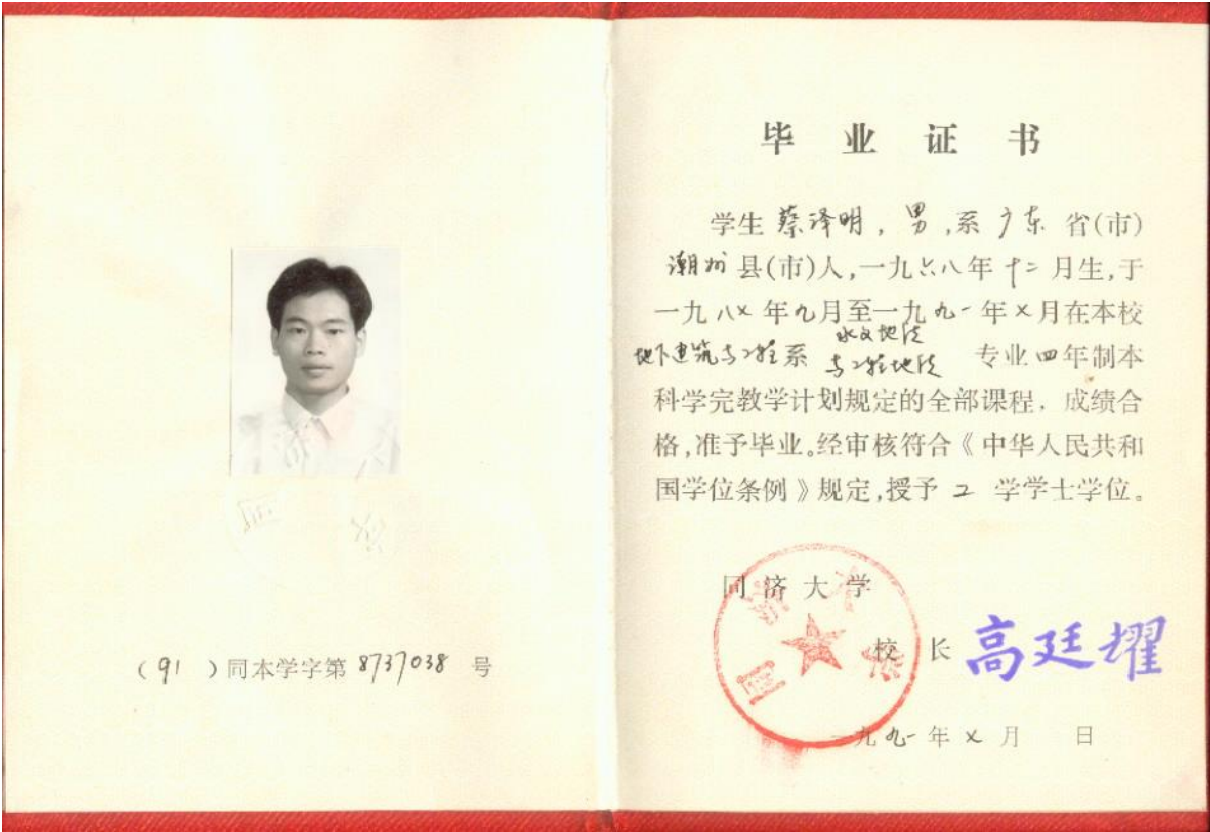 （91）同本学字第8737038号
毕业证书
学生蔡泽明，男，系广东省(市)
潮州县(市)人，一九六八年十二月生，于
一九八七年九月至一九九一年七月在本校
地下建筑与工程系水文地质与工程地质专业四年制本
科学完教学计划规定的全部课程，成绩合
格，准予毕业。经审核符合《中华人民共和
国学位条例》规定，授予工学学士学位。
同济大学
同济大学
校长 高廷耀
一九九一年七月 日